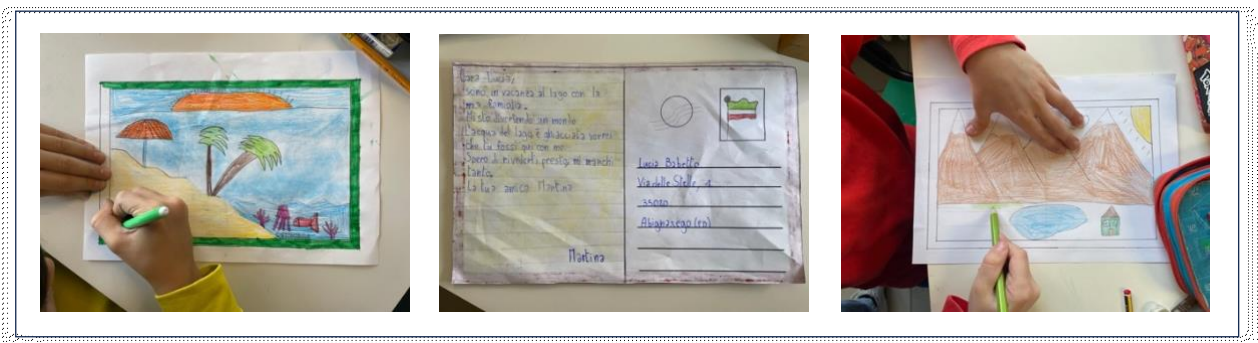 Cara Lucia,
sono in vacanza al lago con la
mia famiglia.
Mi sto divertendo un mondo
L'acqua del lago è ghiacciata vorrei
che tu fossi qui con me.
Spero di rivederti presto, mi manchi
tanto.
La tua amica Martina
Martina
Lucia Babetto
Via delle Stelle, 4
35020
(PD)